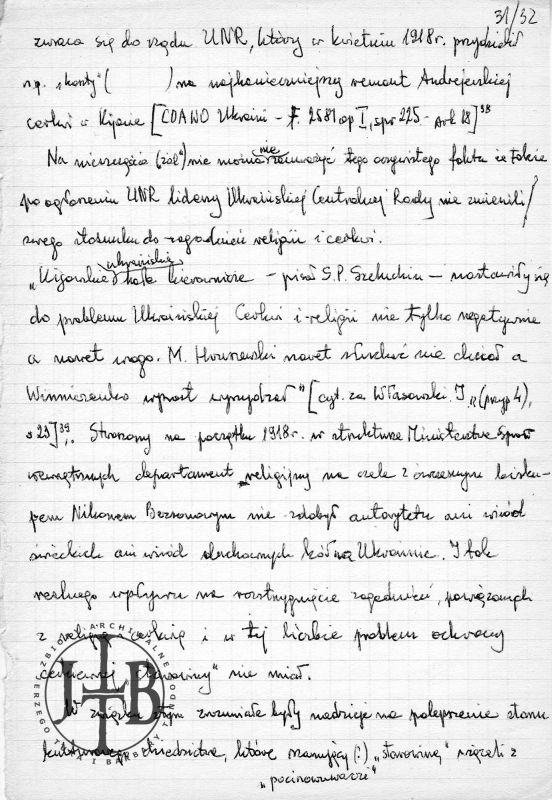 31/32
zwraca się do rządu UNR, który w kwietniu 1918r. przydzielił
np. "koszty" ( ) na najkonieczniejszy remont Andrejewskiej
cerkwi w Kijowie [CDAWO Ukraini - F. 2581 op I, spr 225 - ark 18]³⁸
Na nieszczęście (żal) nie można nie zauważyć tego oczywistego faktu iż także
po ogłoszeniu UNR liderzy Ukraińskiej Centralnej Rady nie zmienili
swego stosunku do zagadnień religii i cerkwi.
"Kijowskie ukraińskie koła kierownicze - pisał S.P. Szełuchin - nastawiły się
do problemu Ukraińskiej Cerkwi i religii nie tylko negatywnie
a nawet wrogo. M. Hruszewski nawet słuchać nie chciał a
Winniczenko wprost wyszydzał" [cyt. za Własowski. I., (przyp 4),
s 23]³⁹. Stworzony na początku 1918r. w strukturze Ministerstwa Spraw
wewnętrznych departament religijny na czele z ówczesnym bisku-
pem Nikonem Bezsonowym nie zdobył autorytetu ani wśród
świeckich ani wśród duchownych kół na Ukrainie. I tak
realnego wpływu na rozstrzygnięcie zagadnień, powiązanych
z religią i cerkwią i w tej liczbie problem ochrony
cerkiewnej "starowiny" nie miał.
W związku z tym zrozumiałe były nadzieje na polepszenie stanu
kulturowego dziedzictwa, które szanujący (?) "starowinę" wiązali z
ZBIORY ARCHIWALNE RODZINY JERZEGO I BARBARY
JHB